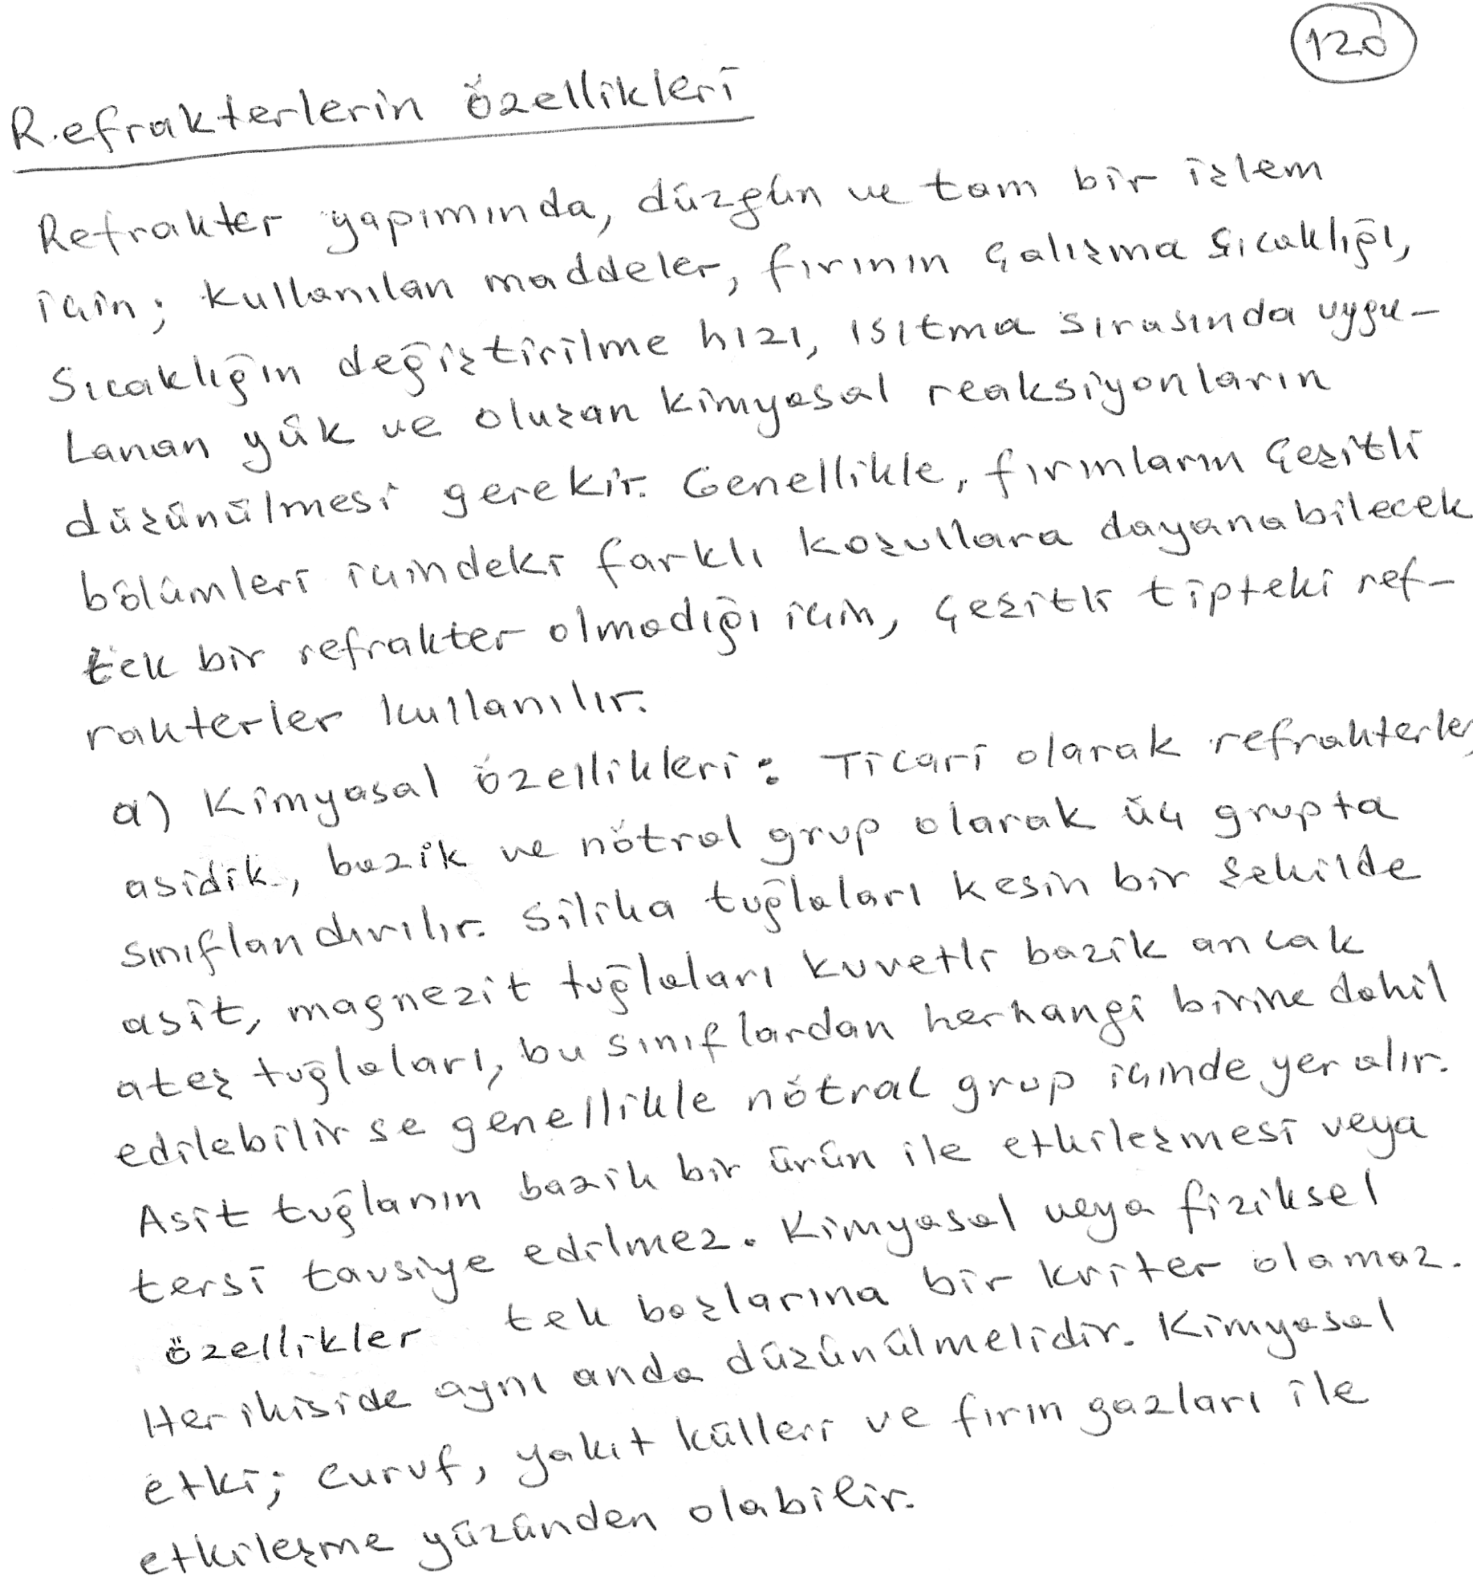 120
Refrakterlerin özellikleri
Refrakter yapımında, düzgün ve tam bir işlem
için; kullanılan maddeler, fırının çalışma sıcaklığı,
Sıcaklığın değiştirilme hızı, ısıtma sırasında uygu-
lanan yük ve oluşan kimyasal reaksiyonların
düşünülmesi gerekir. Genellikle, fırınların çeşitli
bölümleri içindeki farklı koşullara dayanabilecek
tek bir refrakter olmadığı için, çeşitli tipteki ref-
rakterler kullanılır.
a) Kimyasal özellikleri: Ticari olarak refrakterler
asidik, bazik ve nötral grup olarak üç grupta
sınıflandırılır. Silika tuğlaları kesin bir şekilde
asit, magnezit tuğlaları kuvetli bazik ancak
ateş tuğlaları, bu sınıflardan herhangi birine dahil
edilebilirse genellikle nötral grup içinde yer alır.
Asit tuğlanın bazik bir ürün ile etkileşmesi veya
tersi tavsiye edilmez. Kimyasal veya fiziksel
özellikler tek başlarına bir kriter olamaz.
Her ikiside aynı anda düşünülmelidir. Kimyasal
etki; curuf, yakıt külleri ve fırın gazları ile
etkileşme yüzünden olabilir.